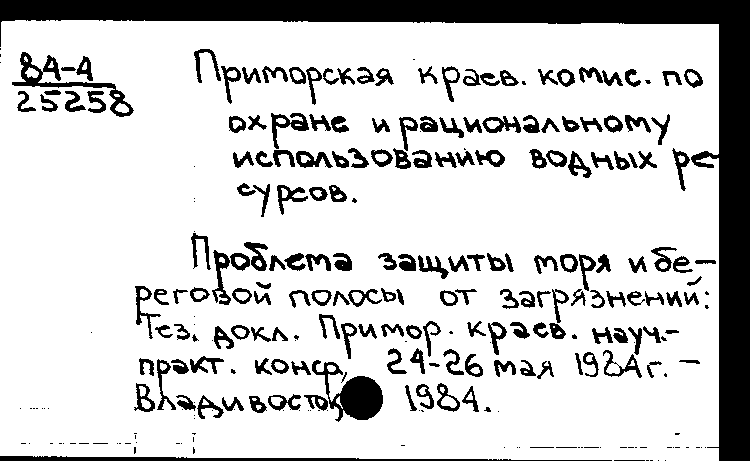 84-4
25258
Приморская краев. комис. по
охране и рациональному
использованию водных ре-
сурсов.
Проблема защиты моря и бе-
реговой полосы от загрязнений:
Тез. докл. Примор. краев. науч.-
практ. конф., 24-26 мая 1984г. –
Владивосток, 1984.